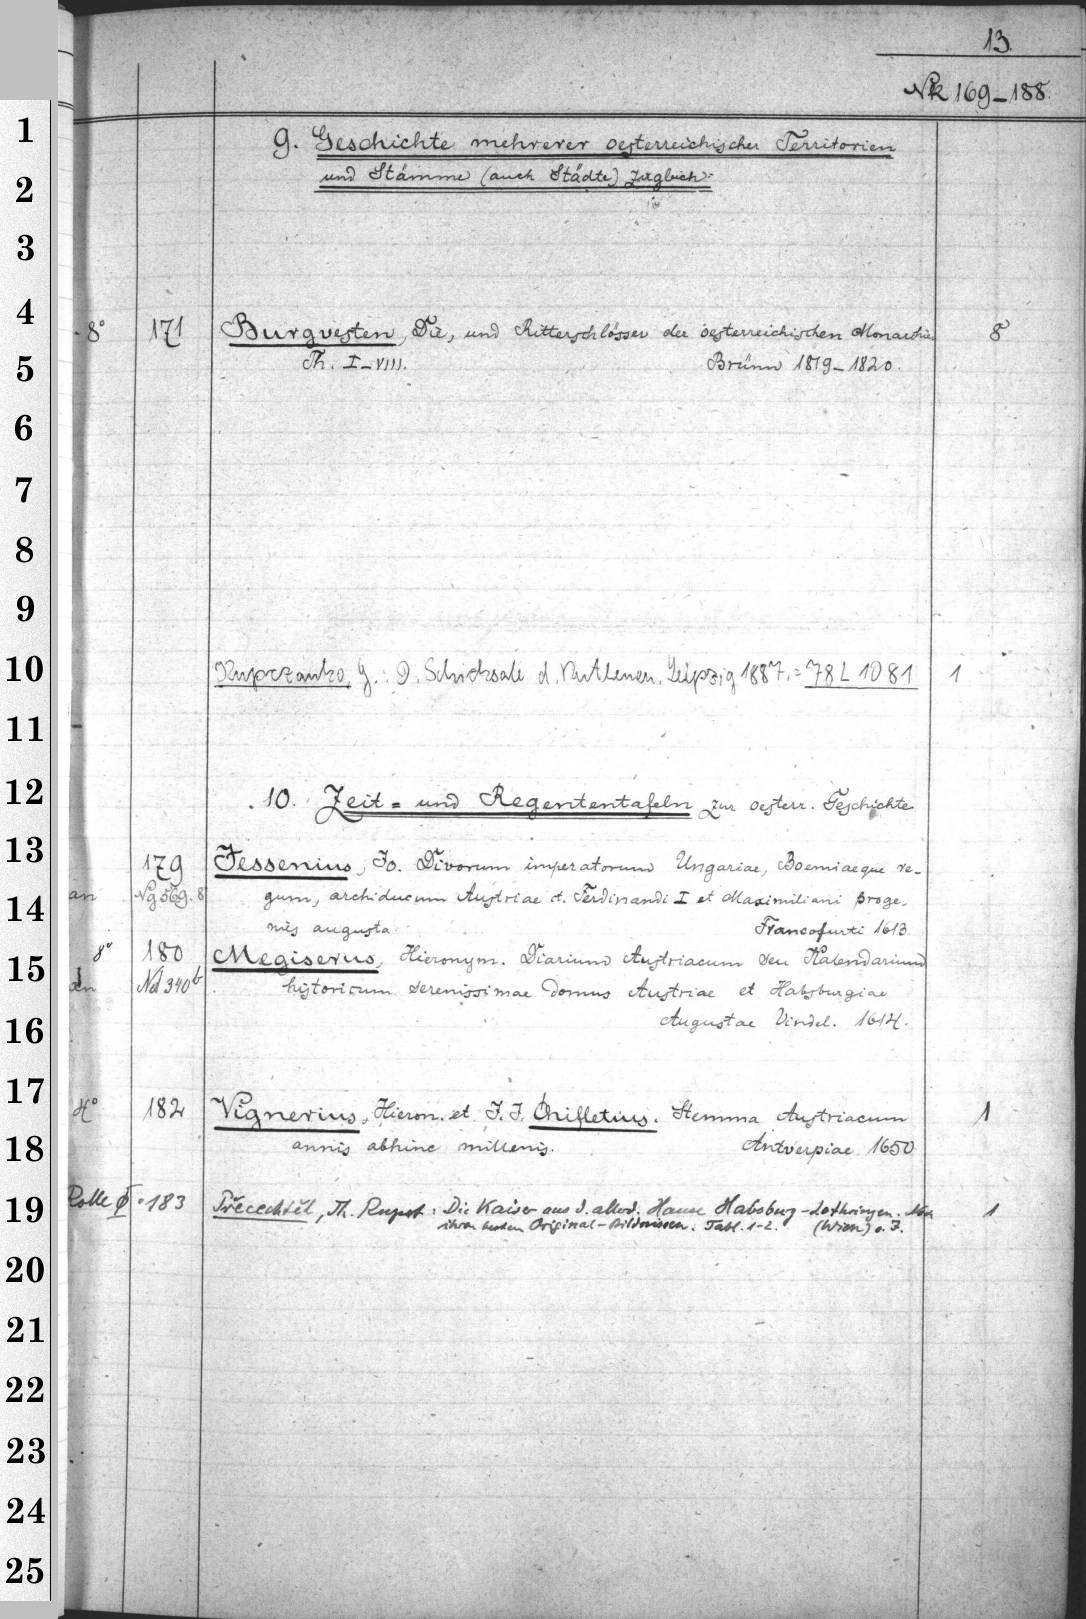 13.
Nk 169-188.
1
9. Geschichte mehrerer oesterreichischer Territorien
2
und Stämme (auch Städte) zugleich
3
4
8° 171 Burgvesten, Die, und Ritterschlösser der oesterreichischen Monarchie 8
5
Th. I-VIII. Brünn 1819-1820.
6
7
8
9
10
Kupczanko, G.: D. Schicksale d. Ruthenen. Leipzig 1887. = 78 L 1081 1
11
12
10. Zeit= und Regententafeln zur oesterr. Geschichte
13
179 Jessenius, Jo. Divorum imperatorum Ungariae, Boemiaeque re-
14
an Ng 569. 8 gum, archiducum Austriae et Ferdinandi I et Maximiliani proge-
nies augusta Francofurti 1613.
15
8° 180 Megiserus, Hieronym. Diarium Austriacum seu Kalendarium
an Nd 340b historicum serenissimae domus Austriae et Habsburgiae
16
Augustae Vindel. 1614.
17
4° 182 Vignerius, Hieron. et J. J. Chifletius. Stemma Austriacum 1
18
annis abhinc millenis. Antverpiae 1650
19
Rolle 183 Přecechtěl, Th. Rupert: Die Kaiser aus d. allerd. Hause Habsburg-Lothringen. Nach 1
ihren besten Original-Bildnissen. Tabl. 1-2. (Wien) o. J.
20
21
22
23
24
25